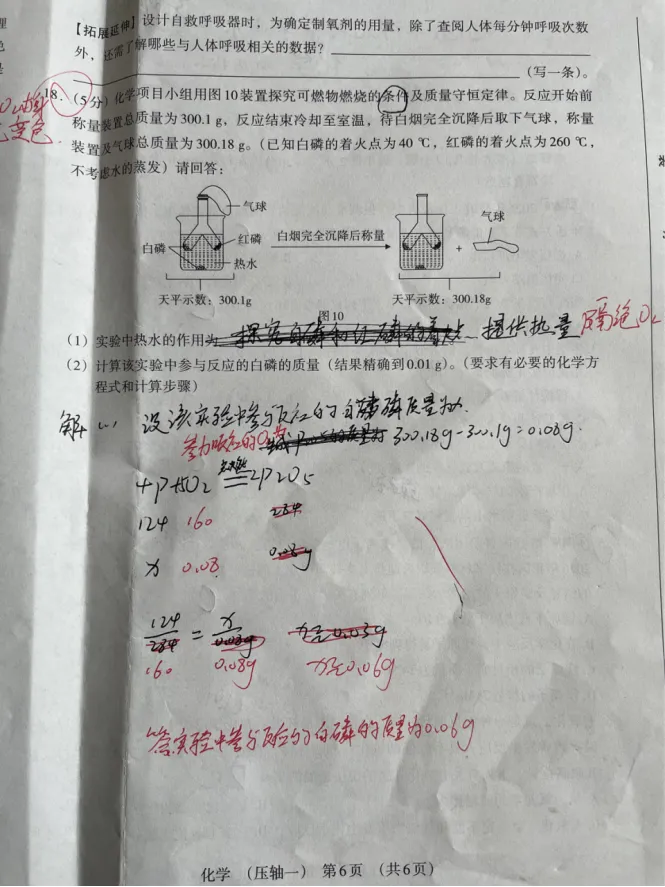 【拓展延伸】设计自救呼吸器时，为确定制氧剂的用量，除了查阅人体每分钟呼吸次数
外，还需了解哪些与人体呼吸相关的数据？
（写一条）。
18.（5分）化学项目小组用图10装置探究可燃物燃烧的条件及质量守恒定律。反应开始前
称量装置总质量为300.1 g，反应结束冷却至室温，待白烟完全沉降后取下气球，称量
变色
装置及气球总质量为300.18 g。（已知白磷的着火点为40 ℃，红磷的着火点为260 ℃，
不考虑水的蒸发）请回答：
气球
白磷
红磷
热水
白烟完全沉降后称量
+
气球
天平示数：300.1g
天平示数：300.18g
图10
（1）实验中热水的作用为 提供热量 隔绝O2
（2）计算该实验中参与反应的白磷的质量（结果精确到0.01 g）。（要求有必要的化学方
程式和计算步骤）
解：设该实验中参与反应的白磷质量为x.
参加反应的O2 300.18g-300.1g=0.08g.
4P+5O2 点燃 2P2O5
124 160 284
x 0.08 0.08g
124/284 = x/0.08g x≈0.03g
160 0.08g x≈0.06g
答实验中参与反应的白磷的质量为0.06g
化学 （压轴一） 第6页 （共6页）